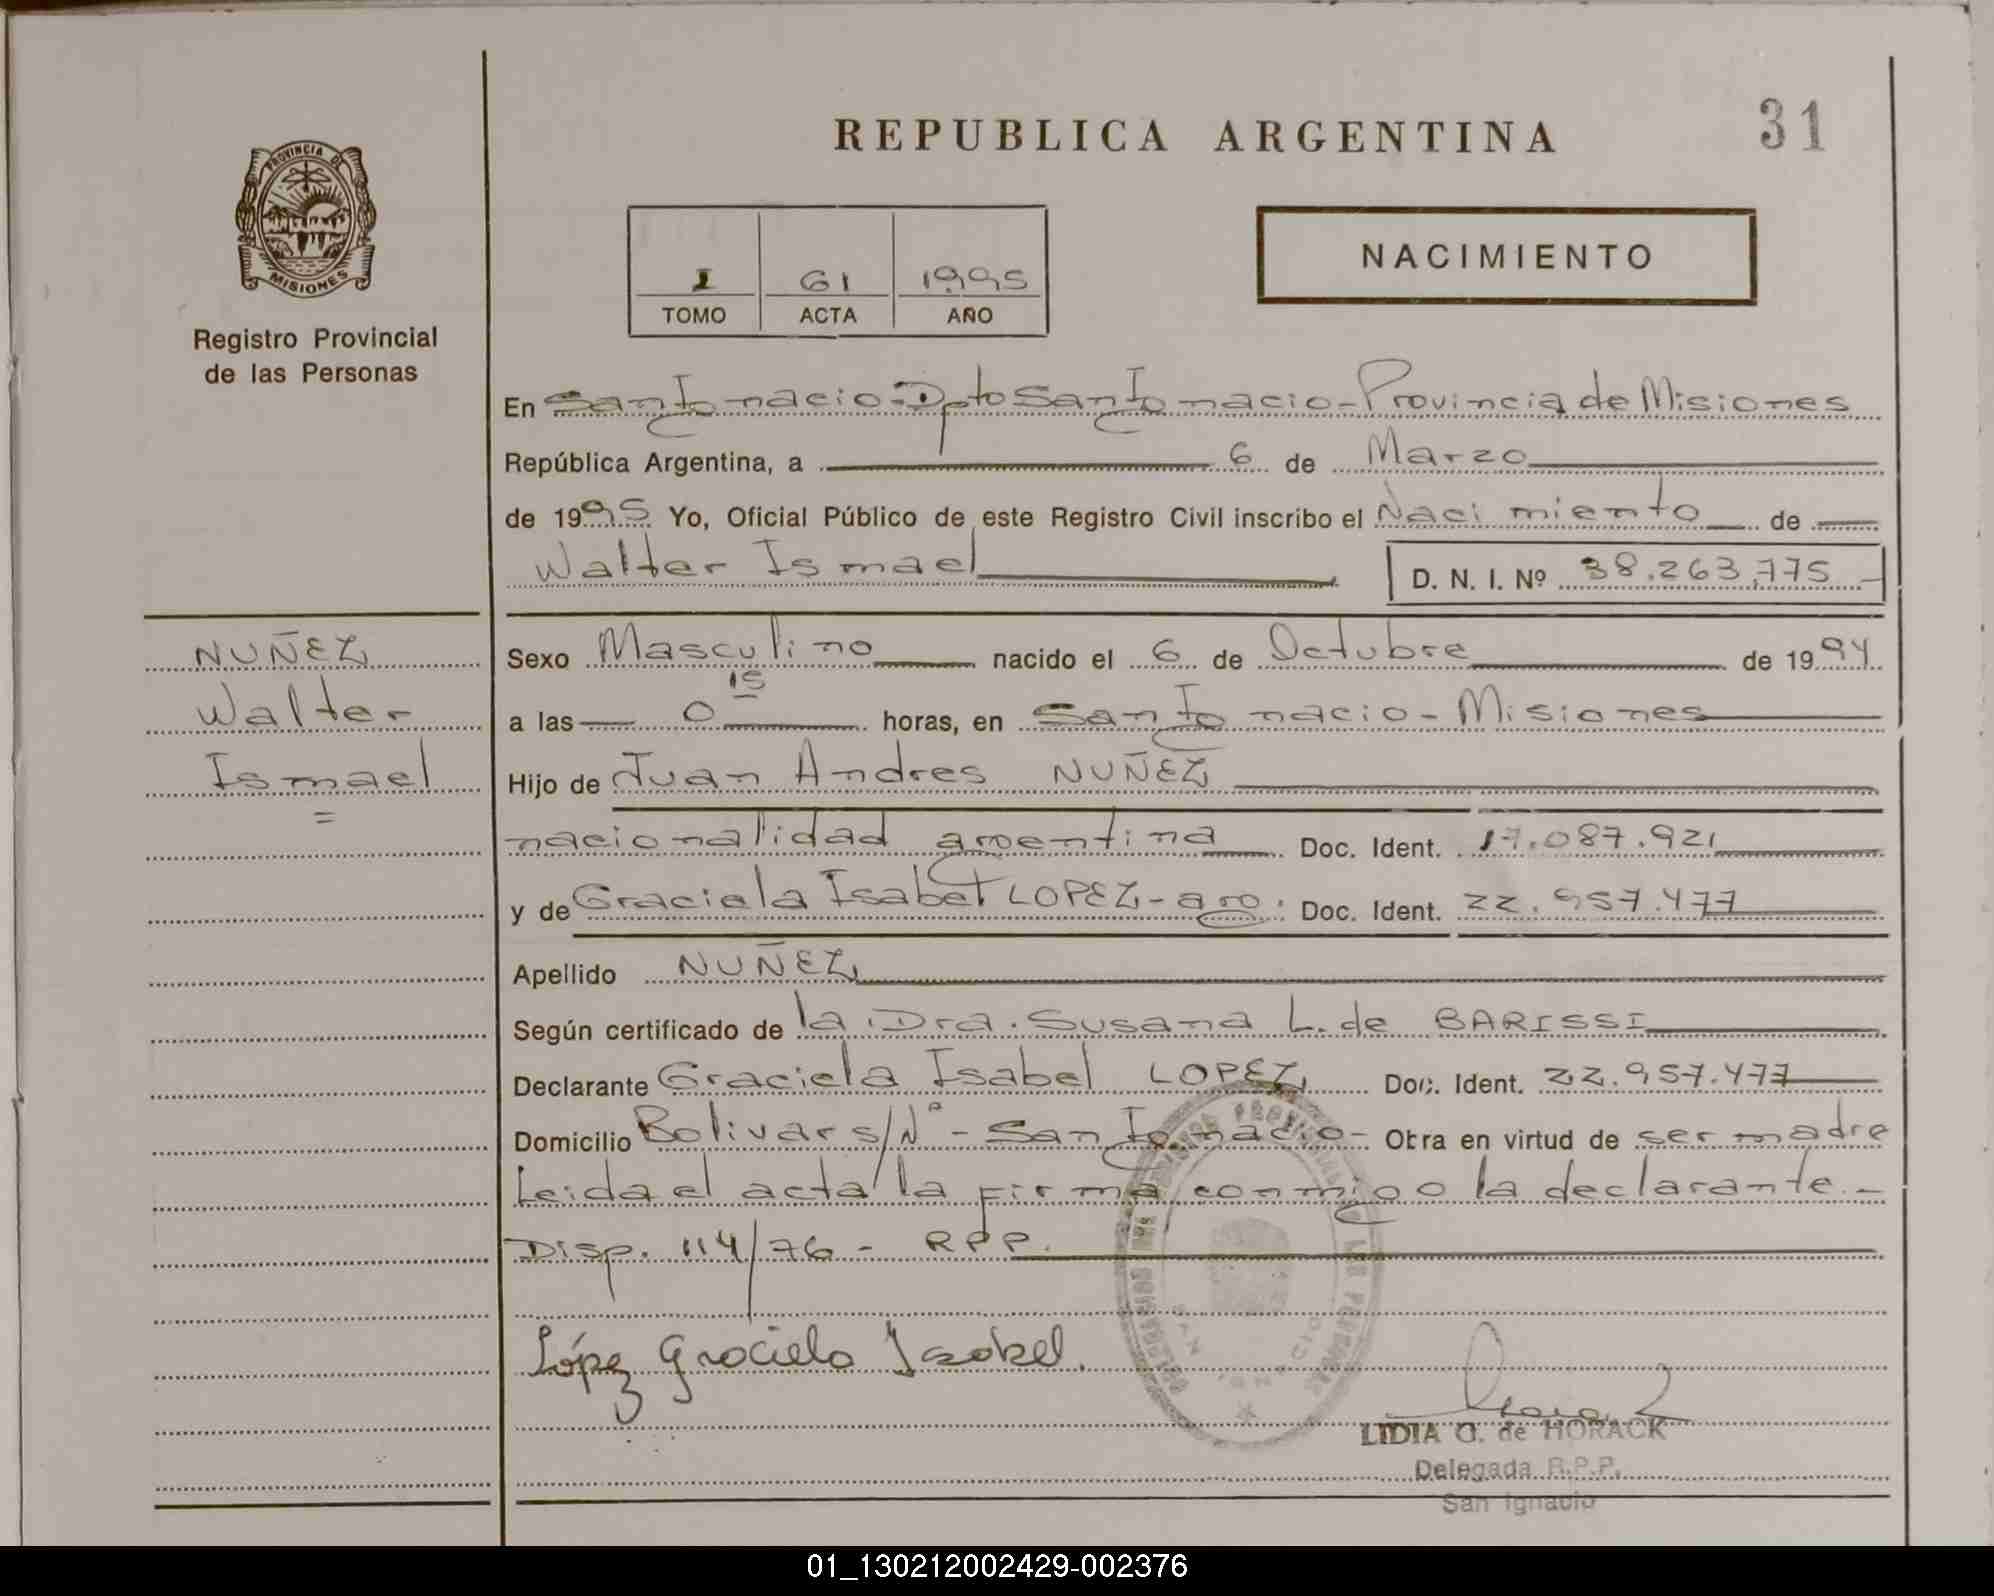 31
REPUBLICA ARGENTINA
PROVINCIA DE
MISIONES
Registro Provincial
de las Personas
I 61 1995
TOMO ACTA AÑO
NACIMIENTO
En San Ignacio - Dpto San Ignacio - Provincia de Misiones
República Argentina, a 6 de Marzo
de 1995 Yo, Oficial Público de este Registro Civil inscribo el Nacimiento de
Walter Ismael D. N. I. Nº 38.263.775
NUÑEZ
Walter
Ismael
=
Sexo Masculino nacido el 6 de Octubre de 1994
a las 0 15 horas, en San Ignacio - Misiones
Hijo de Juan Andres NUÑEZ
nacionalidad argentina Doc. Ident. 17.087.921
y de Graciela Isabel LOPEZ - arg. Doc. Ident. 22.957.477
Apellido NUÑEZ
Según certificado de la Dra. Susana L. de BARISSI
Declarante Graciela Isabel LOPEZ Doc. Ident. 22.957.477
Domicilio Bolivar s/Nº - San Ignacio - Obra en virtud de ser madre
Leida el acta la firma conmigo la declarante. -
Disp. 114/76 - RPP.
López Graciela Isabel.
SAN IGNACIO
LIDIA G. de HORACK
Delegada R.P.P.
San Ignacio
01_130212002429-002376